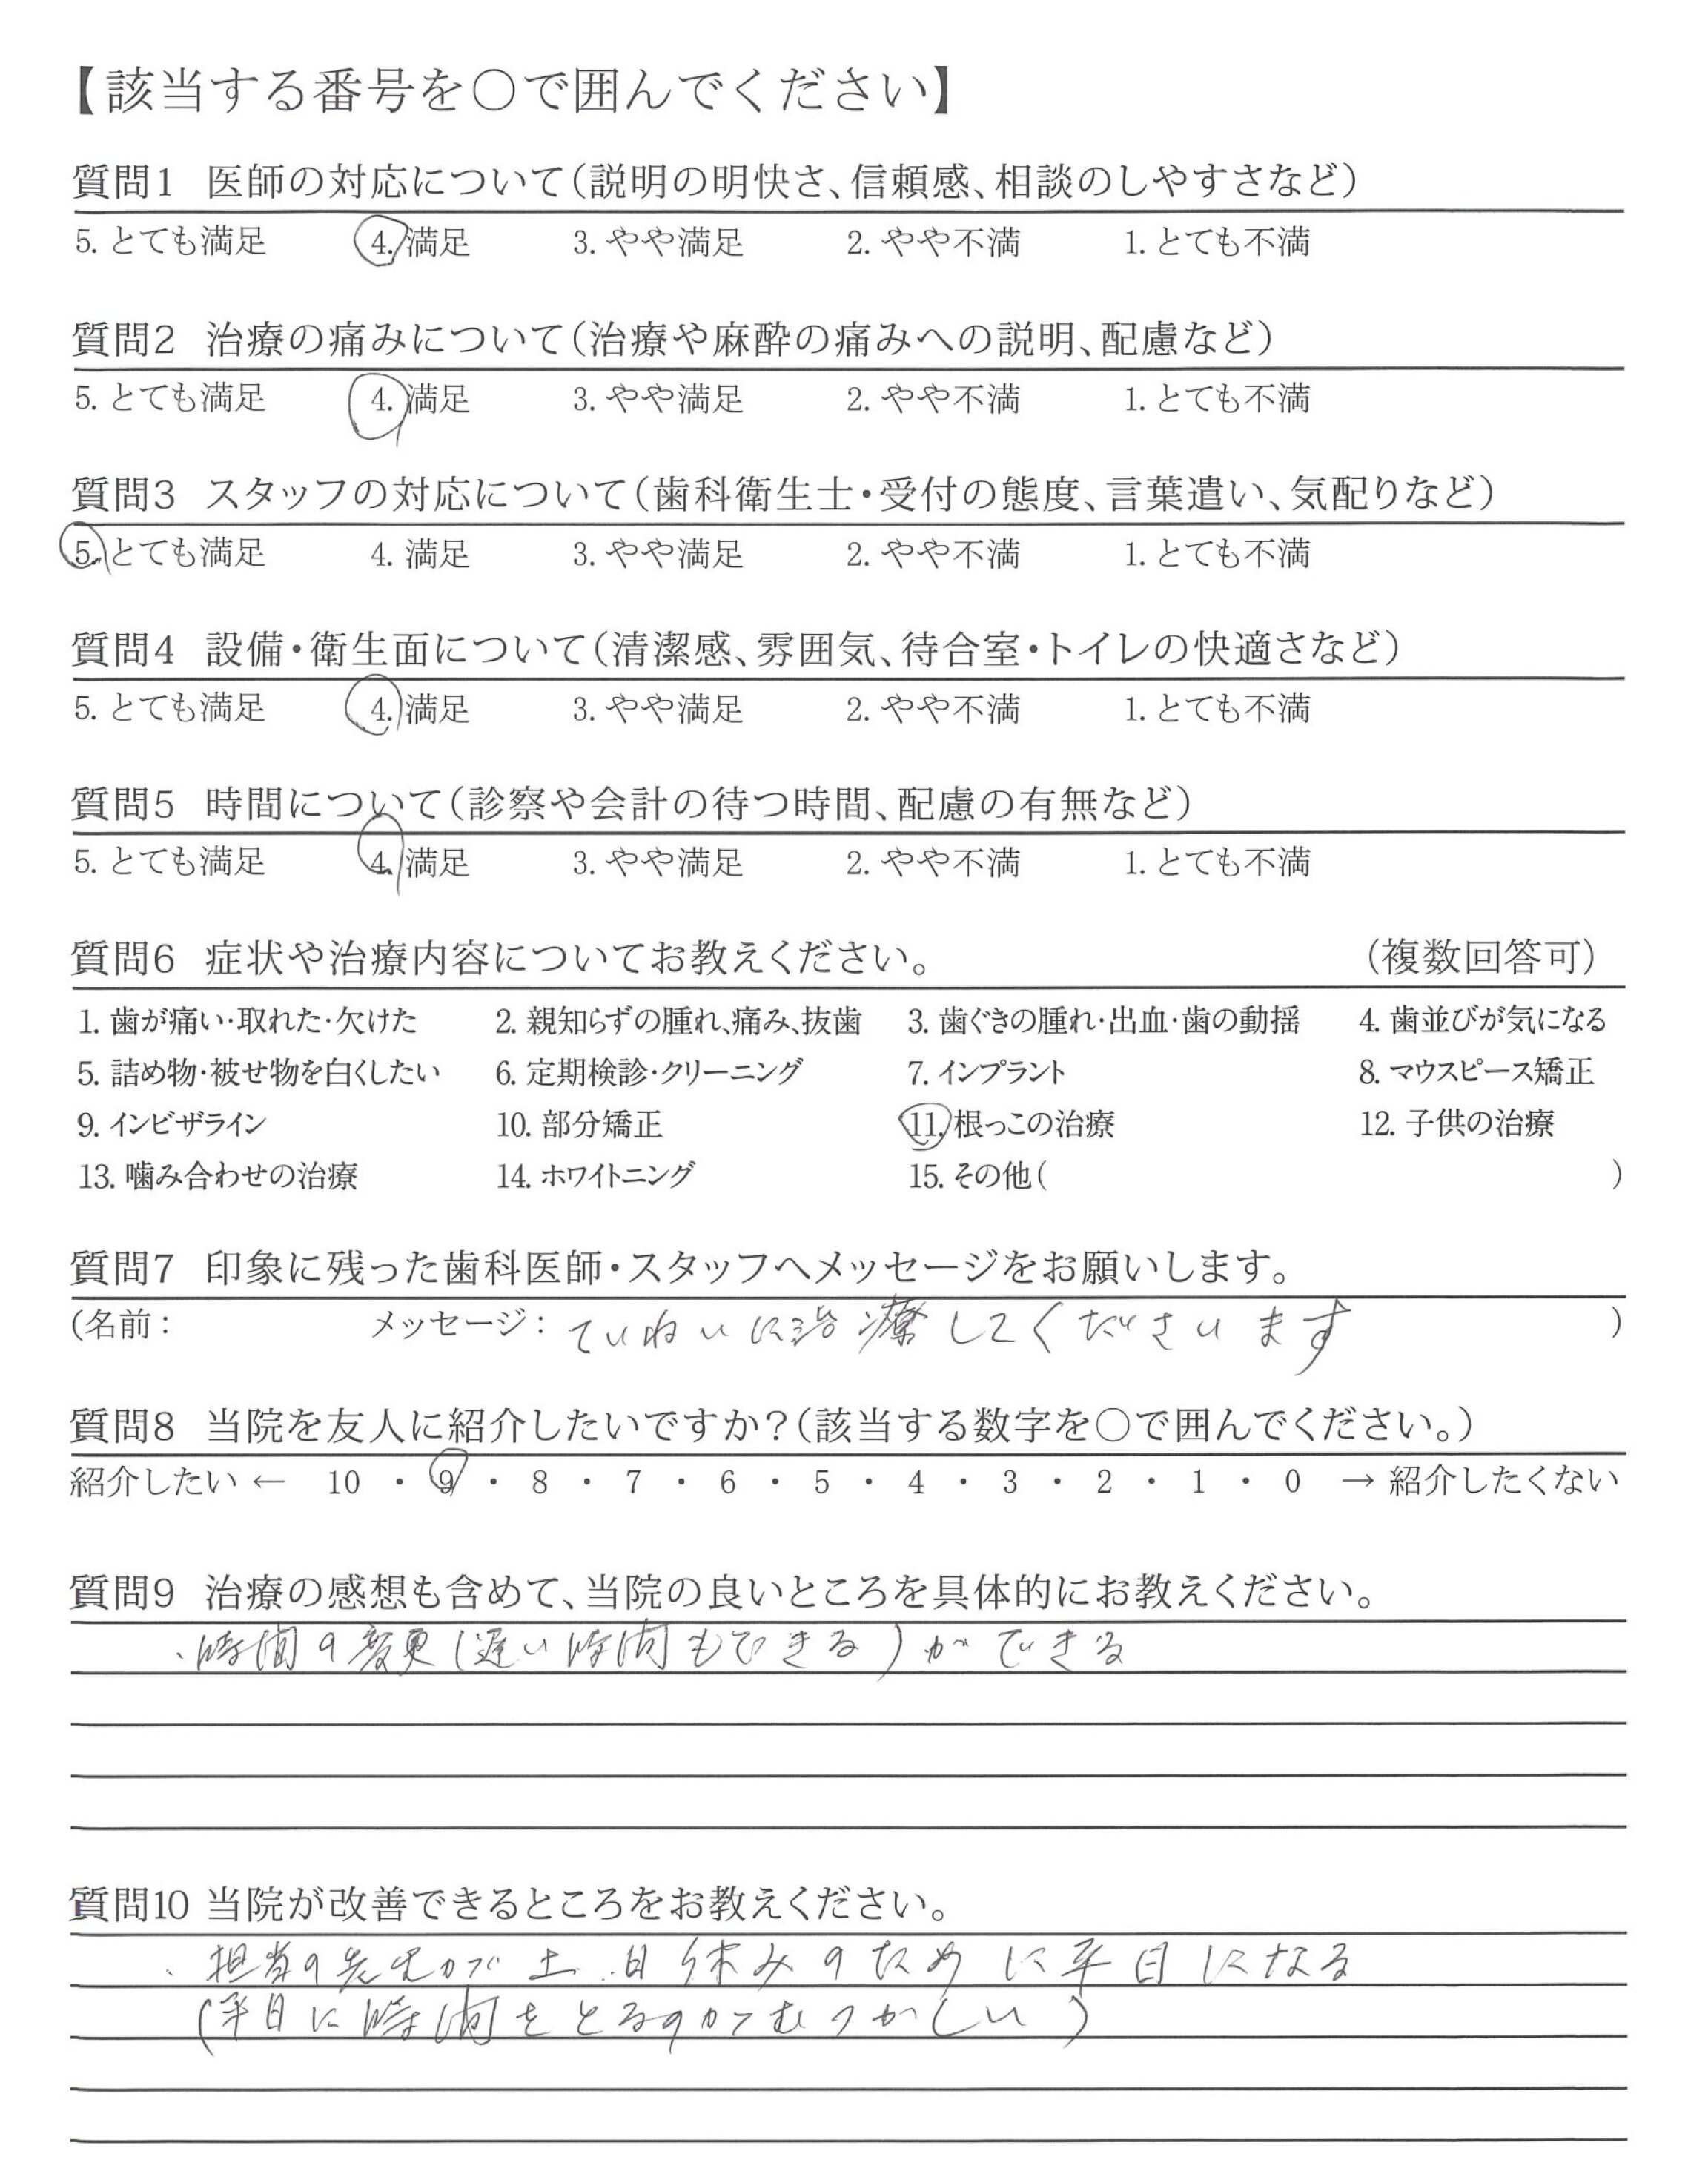 【該当する番号を○で囲んでください】
質問1 医師の対応について（説明の明快さ、信頼感、相談のしやすさなど）
5. とても満足 4. 満足 3. やや満足 2. やや不満 1. とても不満
質問2 治療の痛みについて（治療や麻酔の痛みへの説明、配慮など）
5. とても満足 4. 満足 3. やや満足 2. やや不満 1. とても不満
質問3 スタッフの対応について（歯科衛生士・受付の態度、言葉遣い、気配りなど）
5. とても満足 4. 満足 3. やや満足 2. やや不満 1. とても不満
質問4 設備・衛生面について（清潔感、雰囲気、待合室・トイレの快適さなど）
5. とても満足 4. 満足 3. やや満足 2. やや不満 1. とても不満
質問5 時間について（診察や会計の待つ時間、配慮の有無など）
5. とても満足 4. 満足 3. やや満足 2. やや不満 1. とても不満
質問6 症状や治療内容についてお教えください。 （複数回答可）
1. 歯が痛い・取れた・欠けた 2. 親知らずの腫れ、痛み、抜歯 3. 歯ぐきの腫れ・出血・歯の動揺 4. 歯並びが気になる
5. 詰め物・被せ物を白くしたい 6. 定期検診・クリーニング 7. インプラント 8. マウスピース矯正
9. インビザライン 10. 部分矯正 11. 根っこの治療 12. 子供の治療
13. 噛み合わせの治療 14. ホワイトニング 15. その他（ ）
質問7 印象に残った歯科医師・スタッフへメッセージをお願いします。
（名前： メッセージ：ていねいに治療してくださいます ）
質問8 当院を友人に紹介したいですか？（該当する数字を○で囲んでください。）
紹介したい ← 10 ・ 9 ・ 8 ・ 7 ・ 6 ・ 5 ・ 4 ・ 3 ・ 2 ・ 1 ・ 0 → 紹介したくない
質問9 治療の感想も含めて、当院の良いところを具体的にお教えください。
、時間の変更（遅い時間もできる）ができる
質問10 当院が改善できるところをお教えください。
、担当の先生がで土、日休みのために平日になる
（平日に時間をとるのがむつかしい）